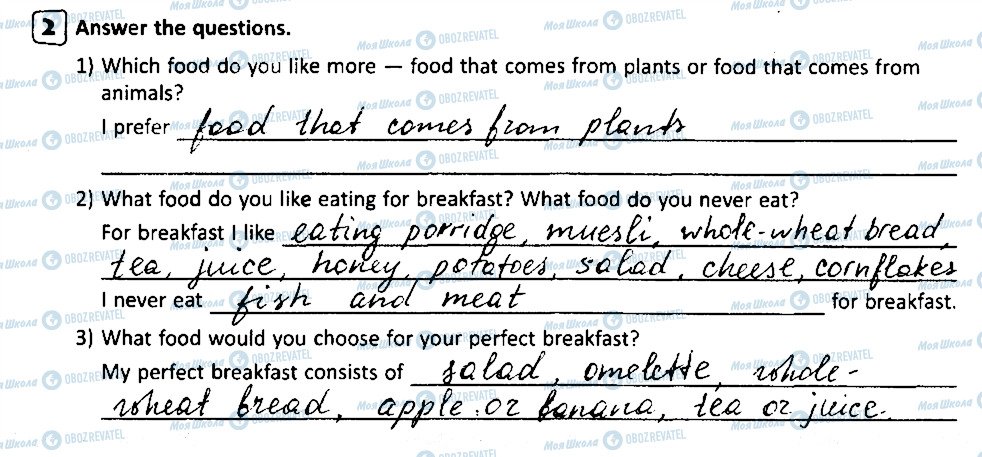 2 Answer the questions.
1) Which food do you like more — food that comes from plants or food that comes from
animals?
I prefer food that comes from plants
2) What food do you like eating for breakfast? What food do you never eat?
For breakfast I like eating porridge, muesli, whole-wheat bread,
tea, juice, honey, potatoes, salad, cheese, cornflakes
I never eat fish and meat for breakfast.
3) What food would you choose for your perfect breakfast?
My perfect breakfast consists of salad, omelette, whole-
wheat bread, apple or banana, tea or juice.
Моя Школа OBOZREVATEL